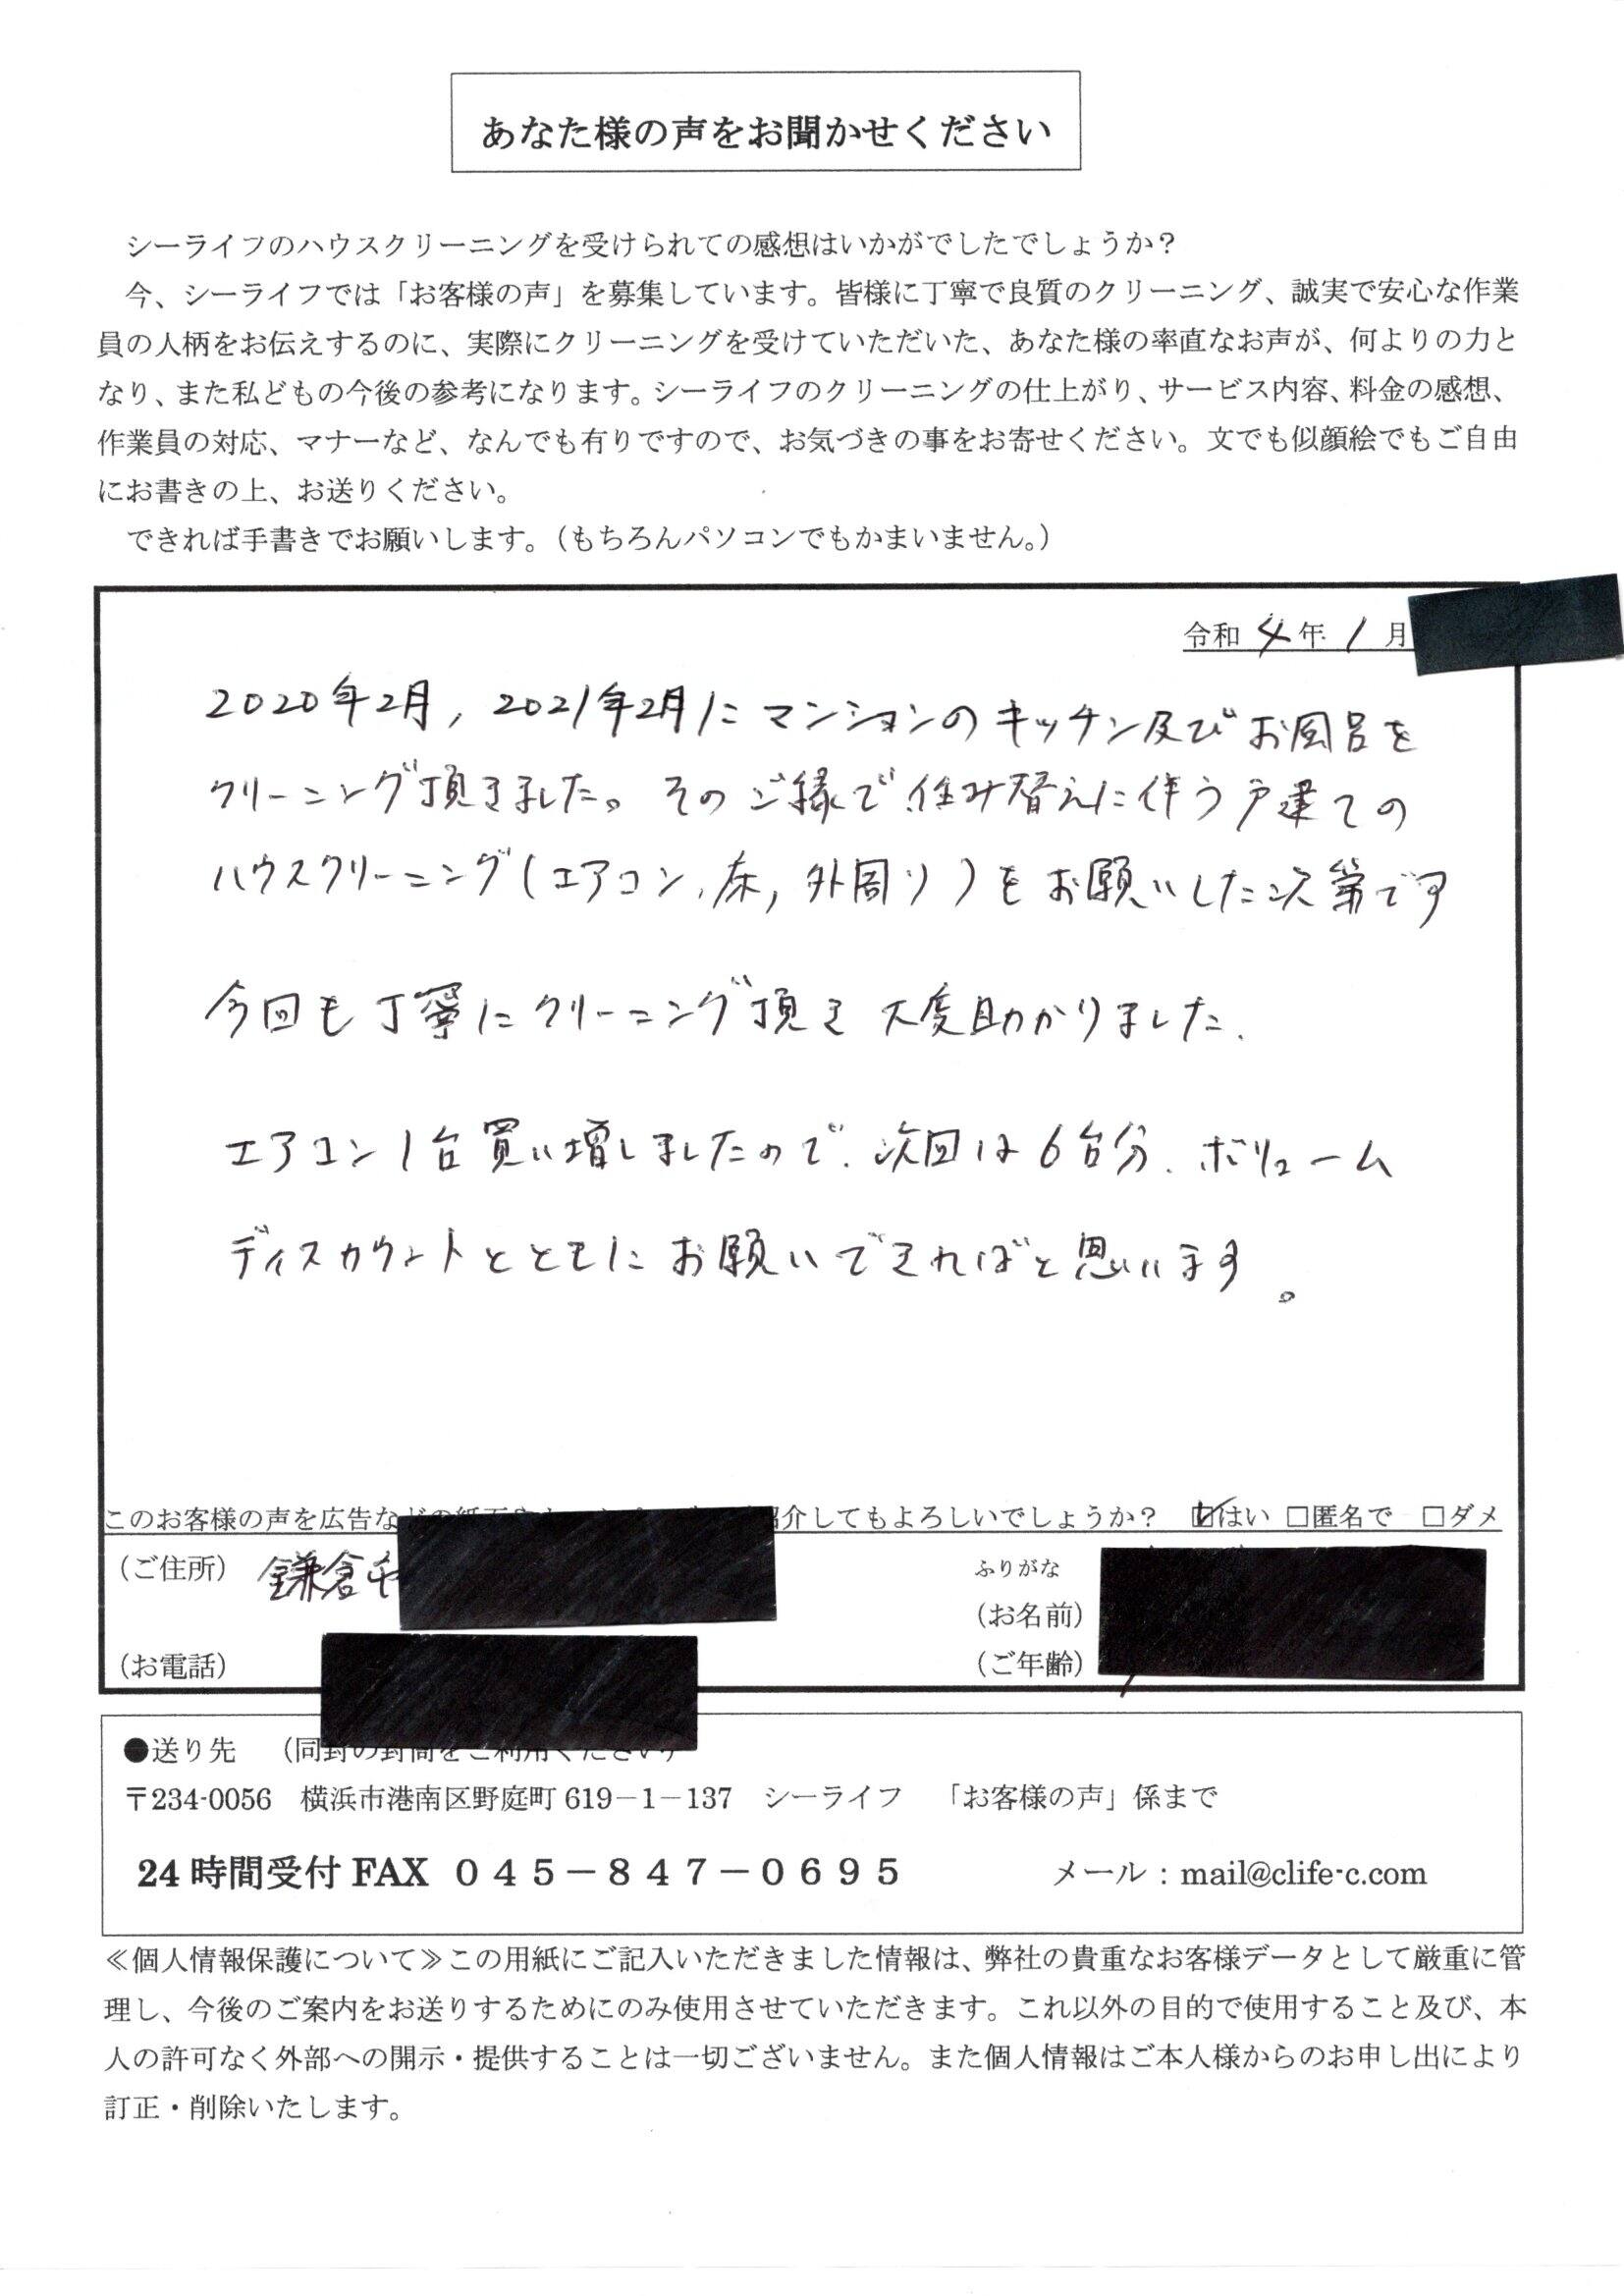 あなた様の声をお聞かせください
シーライフのハウスクリーニングを受けられての感想はいかがでしたでしょうか？
今、シーライフでは「お客様の声」を募集しています。皆様に丁寧で良質のクリーニング、誠実で安心な作業
員の人柄をお伝えするのに、実際にクリーニングを受けていただいた、あなた様の率直なお声が、何よりの力と
なり、また私どもの今後の参考になります。シーライフのクリーニングの仕上がり、サービス内容、料金の感想、
作業員の対応、マナーなど、なんでも有りですので、お気づきの事をお寄せください。文でも似顔絵でもご自由
にお書きの上、お送りください。
できれば手書きでお願いします。（もちろんパソコンでもかまいません。）
令和 4 年 1 月
2020年2月, 2021年2月にマンションのキッチン及びお風呂を
クリーニング頂きました。そのご縁で住み替えに伴う戸建ての
ハウスクリーニング(エアコン,床,外周り)をお願いした次第です
今回も丁寧にクリーニング頂き大変助かりました.
エアコン1台買い増しましたので.次回は6台分.ボリューム
ディスカウントとともにお願いできればと思います。
このお客様の声を広告など 紹介してもよろしいでしょうか？ ☑はい □匿名で □ダメ
（ご住所） 鎌倉市 ふりがな
（お名前）
（お電話） （ご年齢）
●送り先 （同封の封筒をご利用ください）
〒234-0056 横浜市港南区野庭町 619－1－137 シーライフ 「お客様の声」係まで
24 時間受付 FAX ０４５－８４７－０６９５ メール：mail@clife-c.com
≪個人情報保護について≫この用紙にご記入いただきました情報は、弊社の貴重なお客様データとして厳重に管
理し、今後のご案内をお送りするためにのみ使用させていただきます。これ以外の目的で使用すること及び、本
人の許可なく外部への開示・提供することは一切ございません。また個人情報はご本人様からのお申し出により
訂正・削除いたします。